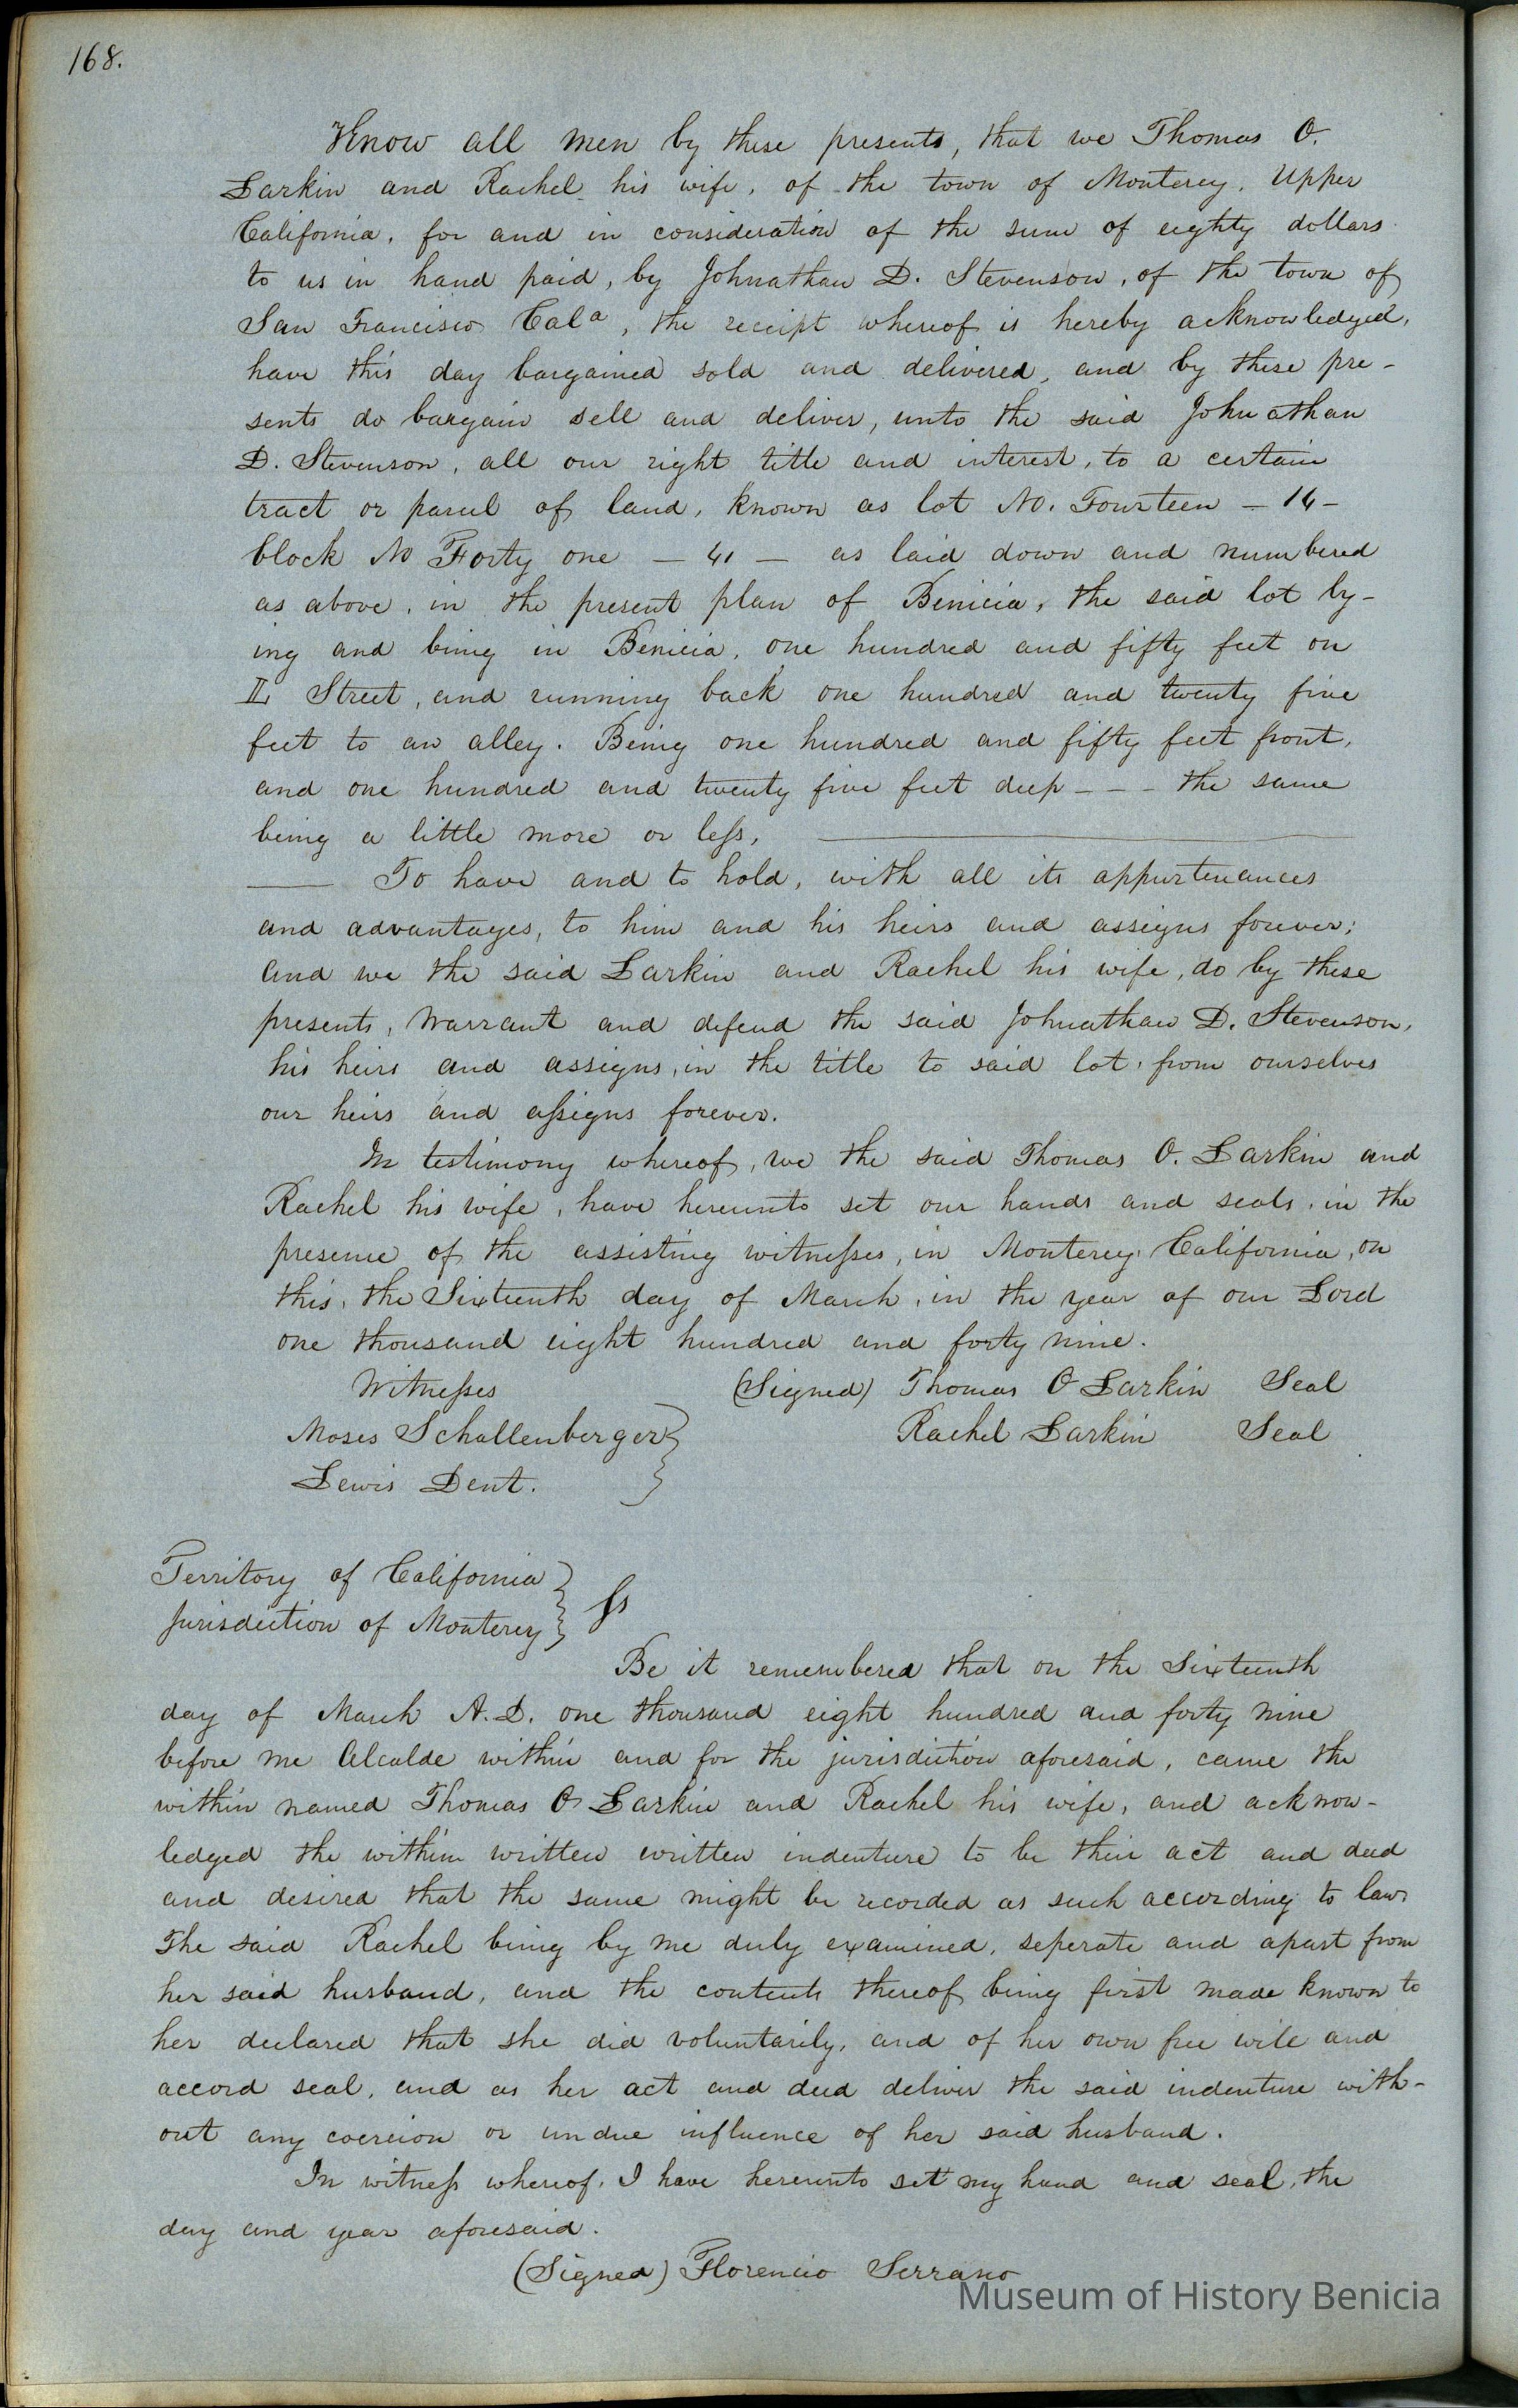 168.
Know all men by these presents, that we Thomas O.
Larkin and Rachel his wife, of the town of Monterey, Upper
California, for and in consideration of the sum of eighty dollars
to us in hand paid, by Johnathan D. Stevenson, of the town of
San Francisco Cala, the receipt whereof is hereby acknowledged,
have this day bargained sold and delivered, and by these pre-
sents do bargain sell and deliver, unto the said Johnathan
D. Stevenson, all our right title and interest, to a certain
tract or parcel of land, known as lot No. Fourteen - 14 -
block No Forty one - 41 - as laid down and numbered
as above, in the present plan of Benicia, the said lot ly-
ing and being in Benicia, one hundred and fifty feet on
L Street, and running back one hundred and twenty five
feet to an alley. Being one hundred and fifty feet front,
and one hundred and twenty five feet deep - - - the same
being a little more or less,
To have and to hold, with all its appurtenances
and advantages, to him and his heirs and assigns forever;
and we the said Larkin and Rachel his wife, do by these
presents, warrant and defend the said Johnathan D. Stevenson,
his heirs and assigns, in the title to said lot, from ourselves
our heirs and assigns forever.
In testimony whereof, we the said Thomas O. Larkin and
Rachel his wife, have hereunto set our hands and seals, in the
presence of the assisting witnesses, in Monterey California, on
this, the Sixteenth day of March, in the year of our Lord
one thousand eight hundred and forty nine.
Witnesses (Signed) Thomas O Larkin Seal
Moses Schallenberger Rachel Larkin Seal
Lewis Dent.
Territory of California
Jurisdiction of Monterey ss
Be it remembered that on the Sixteenth
day of March A.D. one thousand eight hundred and forty nine
before me Alcalde within and for the jurisdiction aforesaid, came the
within named Thomas O Larkin and Rachel his wife, and acknow-
ledged the within written written indenture to be their act and deed
and desired that the same might be recorded as such according to law
The said Rachel being by me duly examined, seperate and apart from
her said husband, and the contents thereof being first made known to
her declared that she did voluntarily, and of her own free will and
accord seal, and as her act and deed deliver the said indenture with-
out any coercion or undue influence of her said husband.
In witness whereof, I have hereunto set my hand and seal, the
day and year aforesaid.
(Signed) Florencio Serrano
Museum of History Benicia